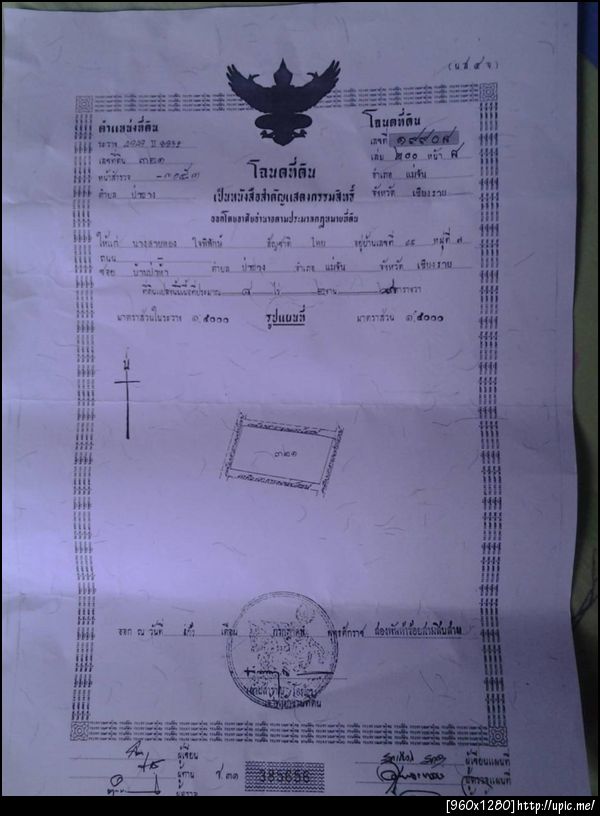 (น.ส. ๔ จ.)
ตำแหน่งที่ดิน
ระวาง
เลขที่ดิน ๓๒๑
หน้าสำรวจ
ตำบล ป่าซาง
โฉนดที่ดิน
เลขที่ ๑๙๙๐๘
เล่ม ๒๐๐ หน้า ๘
อำเภอ แม่จัน
จังหวัด เชียงราย
โฉนดที่ดิน
เป็นหนังสือสำคัญแสดงกรรมสิทธิ์
ออกโดยอาศัยอำนาจตามประมวลกฎหมายที่ดิน
ให้แก่ นางสายทอง ใจพิทักษ์ สัญชาติ ไทย อยู่บ้านเลขที่ หมู่ที่ ๓
ถนน
ซอย ตำบล ป่าซาง อำเภอ แม่จัน จังหวัด เชียงราย
ที่ดินแปลงนี้มีเนื้อที่ประมาณ ๘ ไร่ ๒ งาน ตารางวา
มาตราส่วนในระวาง ๑:๕๐๐๐
รูปแผนที่
มาตราส่วน ๑:๕๐๐๐
น
๓๒๑
ออก ณ วันที่ เดือน กรกฎาคม พุทธศักราช สองพันห้าร้อยสามสิบสาม
เจ้าพนักงานที่ดิน
ผู้เขียน
ผู้ทาน
ผู้ตรวจ
ช ๓๑
385656
ผู้เขียนแผนที่
ผู้ตรวจแผนที่
[960x1280]http://upic.me/